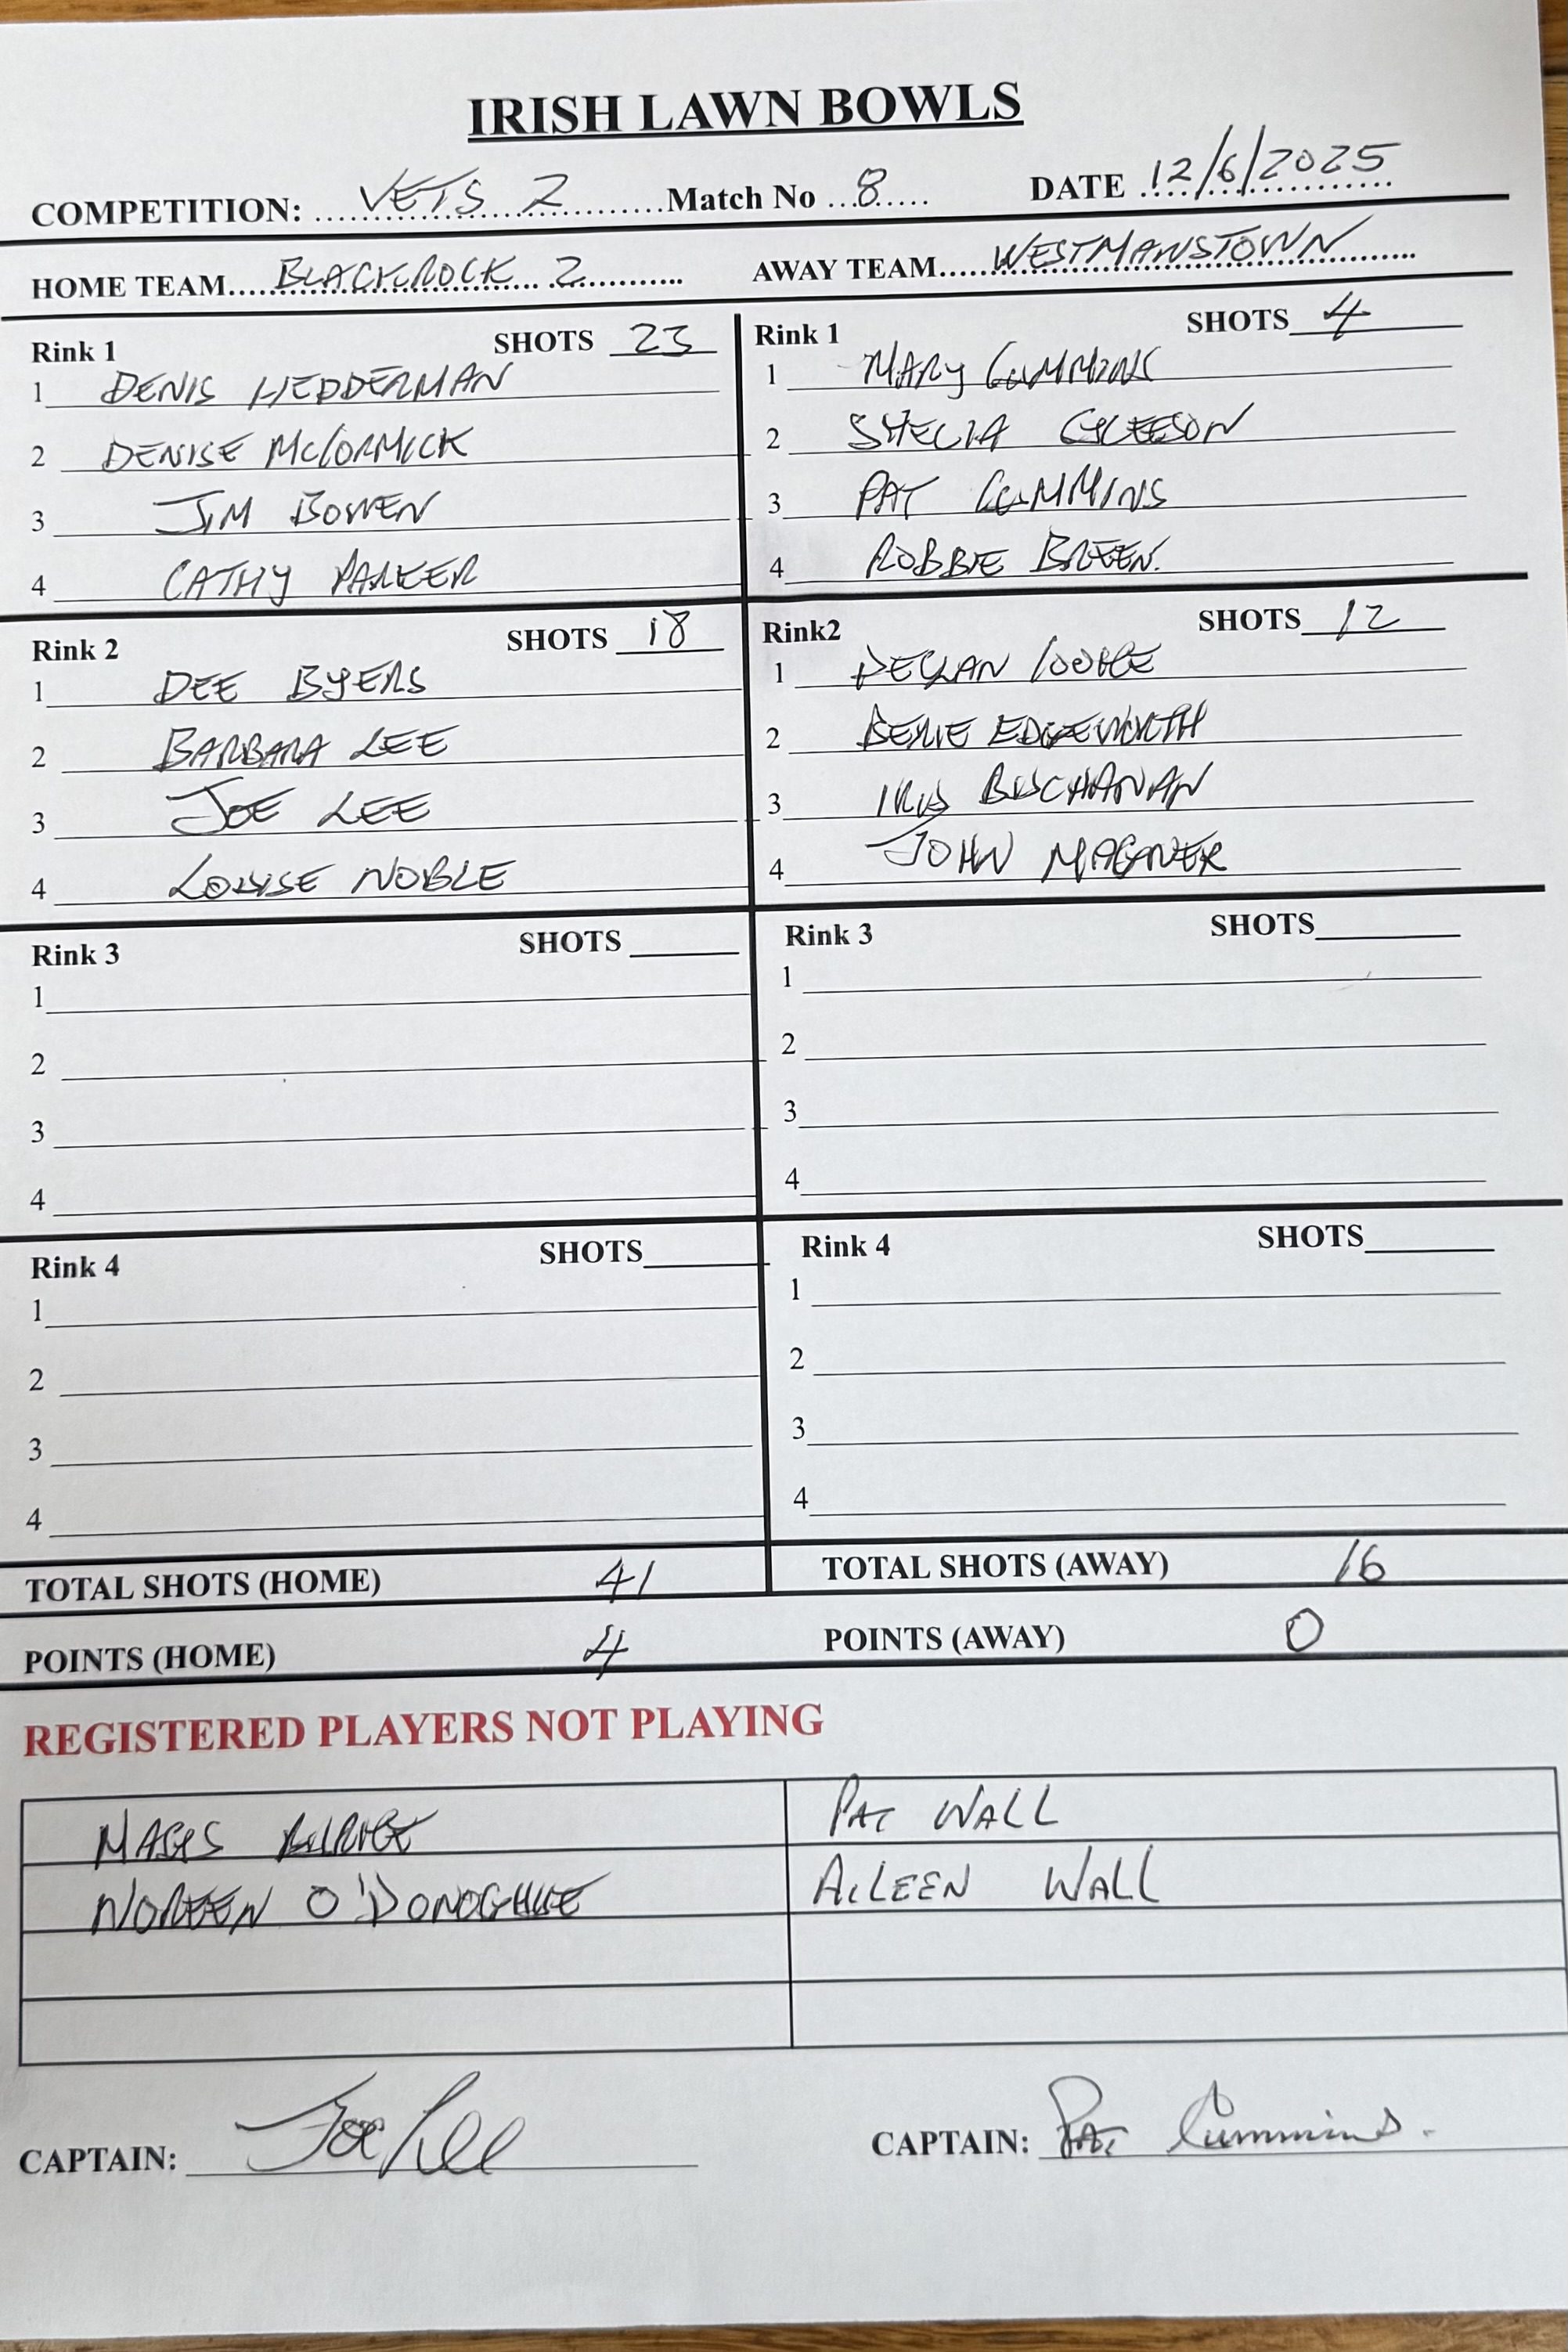 IRISH LAWN BOWLS
COMPETITION: VETS 2 Match No 8 DATE 12/6/2025
HOME TEAM BLACKROCK 2 AWAY TEAM WESTMANSTOWN
Rink 1 SHOTS 23
1 DENIS HEDDERMAN
2 DENISE McCORMICK
3 JIM BOWEN
4 CATHY PARKER
Rink 1 SHOTS 4
1 MARY CUMMINS
2 SHELIA GLEESON
3 PAT CUMMINS
4 ROBBIE BREEN.
Rink 2 SHOTS 18
1 DEE BYERS
2 BARBARA LEE
3 JOE LEE
4 LOUISE NOBLE
Rink2 SHOTS 12
1 DECLAN
2 EDGEWORTH
3 IRIS BUCHANAN
4 JOHN MAGNER
Rink 3 SHOTS
1
2
3
4
Rink 3 SHOTS
1
2
3
4
Rink 4 SHOTS
1
2
3
4
Rink 4 SHOTS
1
2
3
4
TOTAL SHOTS (HOME) 41 TOTAL SHOTS (AWAY) 16
POINTS (HOME) 4 POINTS (AWAY) 0
REGISTERED PLAYERS NOT PLAYING
MAGS BURKE PAT WALL
NOREEN O'DONOGHUE AILEEN WALL
CAPTAIN: Joe Lee CAPTAIN: Pat Cummins.